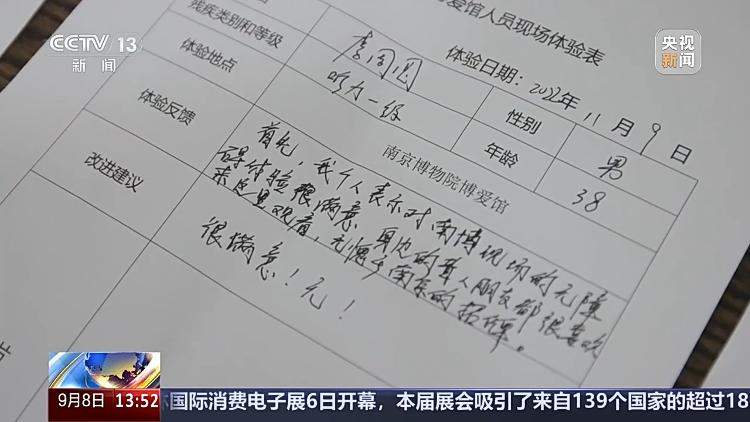 CCTV 13
新闻
央视
新闻
爱馆人员现场体验表
体验日期：2022年11月9日
残疾类别和等级
李周圆
性别
男
体验地点
听力一级
年龄
38
体验反馈
南京博物院博爱馆
首先，我个人表示对南博现场的无障
碍体验很满意，身边的聋人朋友都很喜欢
来这里观看，无愧于南京的招牌。
改进建议
很满意！无！
9月8日 13:52
国际消费电子展6日开幕，本届展会吸引了来自139个国家的超过18